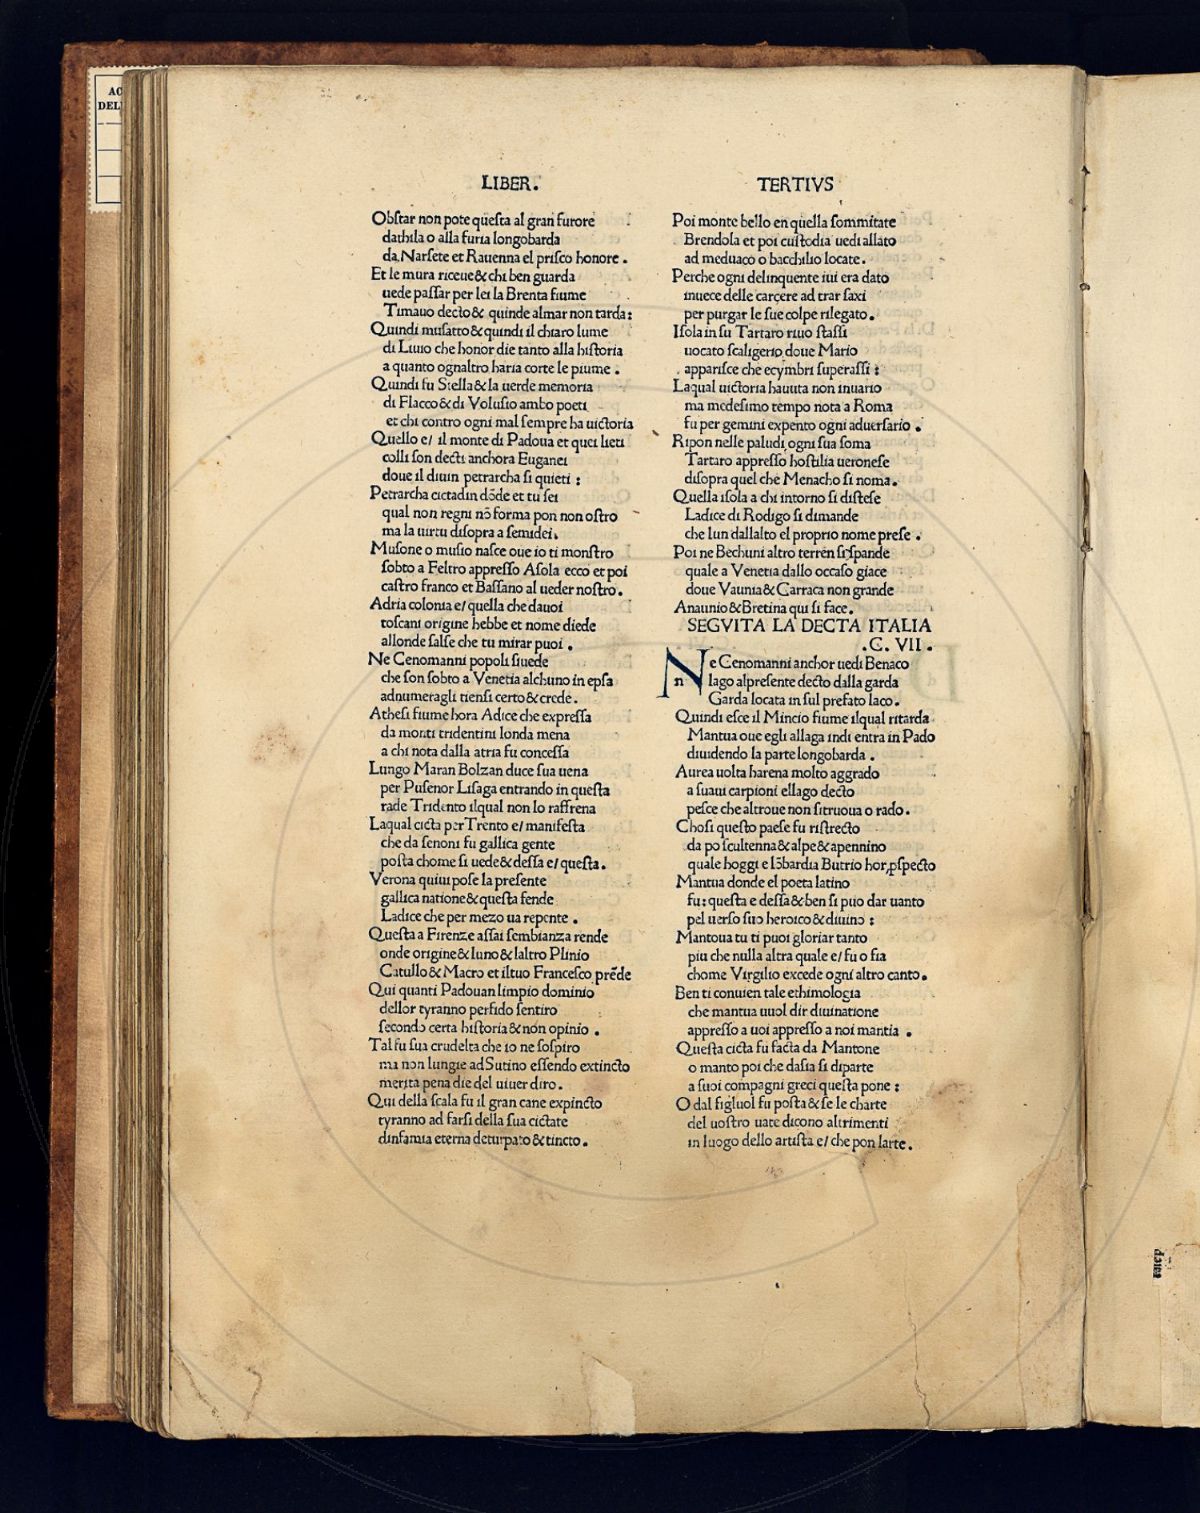 AC
DEL
LIBER.
Obstar non pote questa al gran furore
dathila o alla furia longobarda
da Narsete et Rauenna el prisco honore.
Et le mura riceue & chi ben guarda
uede passar per lei la Brenta fiume
Timauo decto & quinde almar non tarda:
Quindi musatto & quindi il chiaro lume
di Liuio che honor die tanto alla historia
a quanto ognaltro haria corte le piume.
Quindi fu Stella & la uerde memoria
di Flacco & di Volusio ambo poeti
et chi contro ogni mal sempre ha uictoria
Quello e/ il monte di Padoua et quei lieti
colli son decti anchora Euganei
doue il diuin petrarcha si quieti:
Petrarcha cictadin dōde et tu sei
qual non regni nō forma pon non ostro
ma la uirtu disopra a semidei.
Musone o musio nasce oue io ti monstro
sobto a Feltro appresso Asola ecco et poi
castro franco et Bassano al ueder nostro.
Adria colonia e/ quella che dauoi
toscani origine hebbe et nome diede
allonde salse che tu mirar puoi.
Ne Cenomanni popoli siuede
che son sobto a Venetia alchuno in epsa
adnumeragli tiensi certo & crede.
Athesi fiume hora Adice che expressa
da monti tridentini londa mena
a chi nota dalla atria fu concessa
Lungo Maran Bolzan duce sua uena
per Pusenor Lisaga entrando in questa
rade Tridento ilqual non lo raffrena
Laqual cicta per Trento e/ manifesta
che da senoni fu gallica gente
posta chome si uede & dessa e/ questa.
Verona quiui pose la presente
gallica natione & questa fende
Ladice che per mezo ua repente.
Questa a Firenze assai sembianza rende
onde origine & luno & laltro Plinio
Catullo & Macro et iltuo Francesco prēde
Qui quanti Padouan limpio dominio
dellor tyranno perfido sentiro
secondo certa historia & non opinio.
Tal fu sua crudelta che io ne sospiro
ma non lungie ad Sutino essendo extincto
merita pena die del uiuer diro.
Qui della scala fu il gran cane expincto
tyranno ad farsi della sua cictate
dinfamia eterna deturpato & tincto.
TERTIVS
Poi monte bello en quella sommitate
Brendola et poi custodia uedi allato
ad meduaco o bacchilio locate.
Perche ogni delinquente iui era dato
inuece delle carcere ad trar saxi
per purgar le sue colpe rilegato.
Isola in su Tartaro riuo stassi
uocato scaligerio doue Mario
apparisce che ecymbri superassi:
Laqual uictoria hauuta non inuario
ma medesimo tempo nota a Roma
fu per gemini expento ogni aduersario.
Ripon nelle paludi ogni sua soma
Tartaro appresso hostilia ueronese
disopra quel che Menacho si noma.
Quella isola a chi intorno si distese
Ladice di Rodigo si dimande
che lun dallalto el proprio nome prese.
Poi ne Bechuni altro terren si spande
quale a Venetia dallo occaso giace
doue Vaunia & Carraca non grande
Anaunio & Bretina qui si face.
SEGVITA LA DECTA ITALIA
.C. VII.
Ne Cenomanni anchor uedi Benaco
n lago alpresente decto dalla garda
Garda locata in sul prefato laco.
Quindi esce il Mincio fiume ilqual ritarda
Mantua oue egli allaga indi entra in Pado
diuidendo la parte longobarda.
Aurea uolta harena molto aggrado
a suaui carpioni ellago decto
pesce che altroue non sitruoua o rado.
Chosi questo paese fu ristrecto
da po scultenna & alpe & apennino
quale hoggi e lōbardia Butrio hor ꝓspecto
Mantua donde el poeta latino
fu: questa e dessa & ben si puo dar uanto
pel uerso suo heroico & diuino:
Mantoua tu ti puoi gloriar tanto
piu che nulla altra quale e/ fu o fia
chome Virgilio excede ogni altro canto.
Ben ti conuien tale ethimologia
che mantua uuol dir diuinatione
appresso a uoi appresso a noi mantia.
Questa cicta fu facta da Mantone
o manto poi che dasia si diparte
a suoi compagni greci questa pone:
O dal figluol fu posta & se le charte
del uostro uate dicono altrimenti
in luogo dello artista e/ che pon larte.